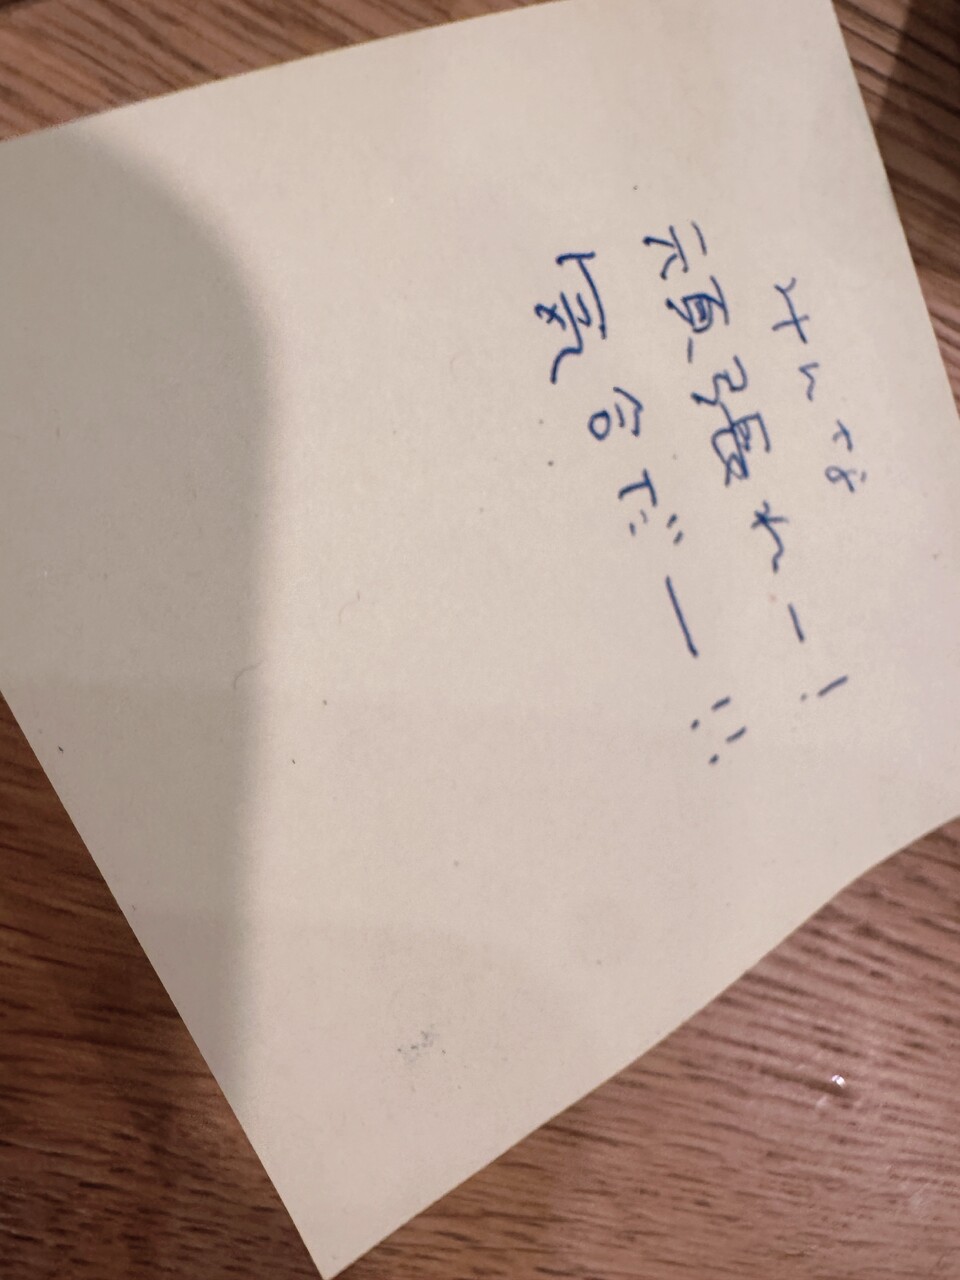 みんな
頑張れー!
気合だー!!